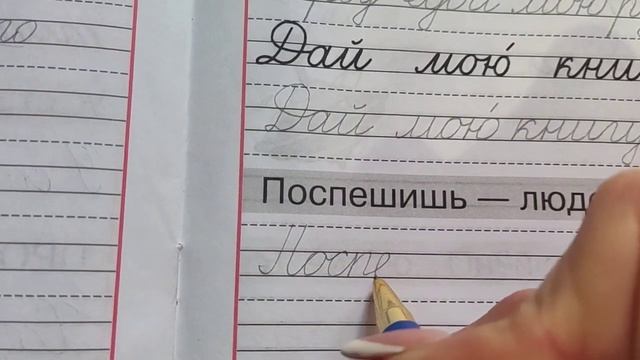 мою
Дай мою́ кни
Дай мою́ книгу
Поспешишь — люд
Поспе